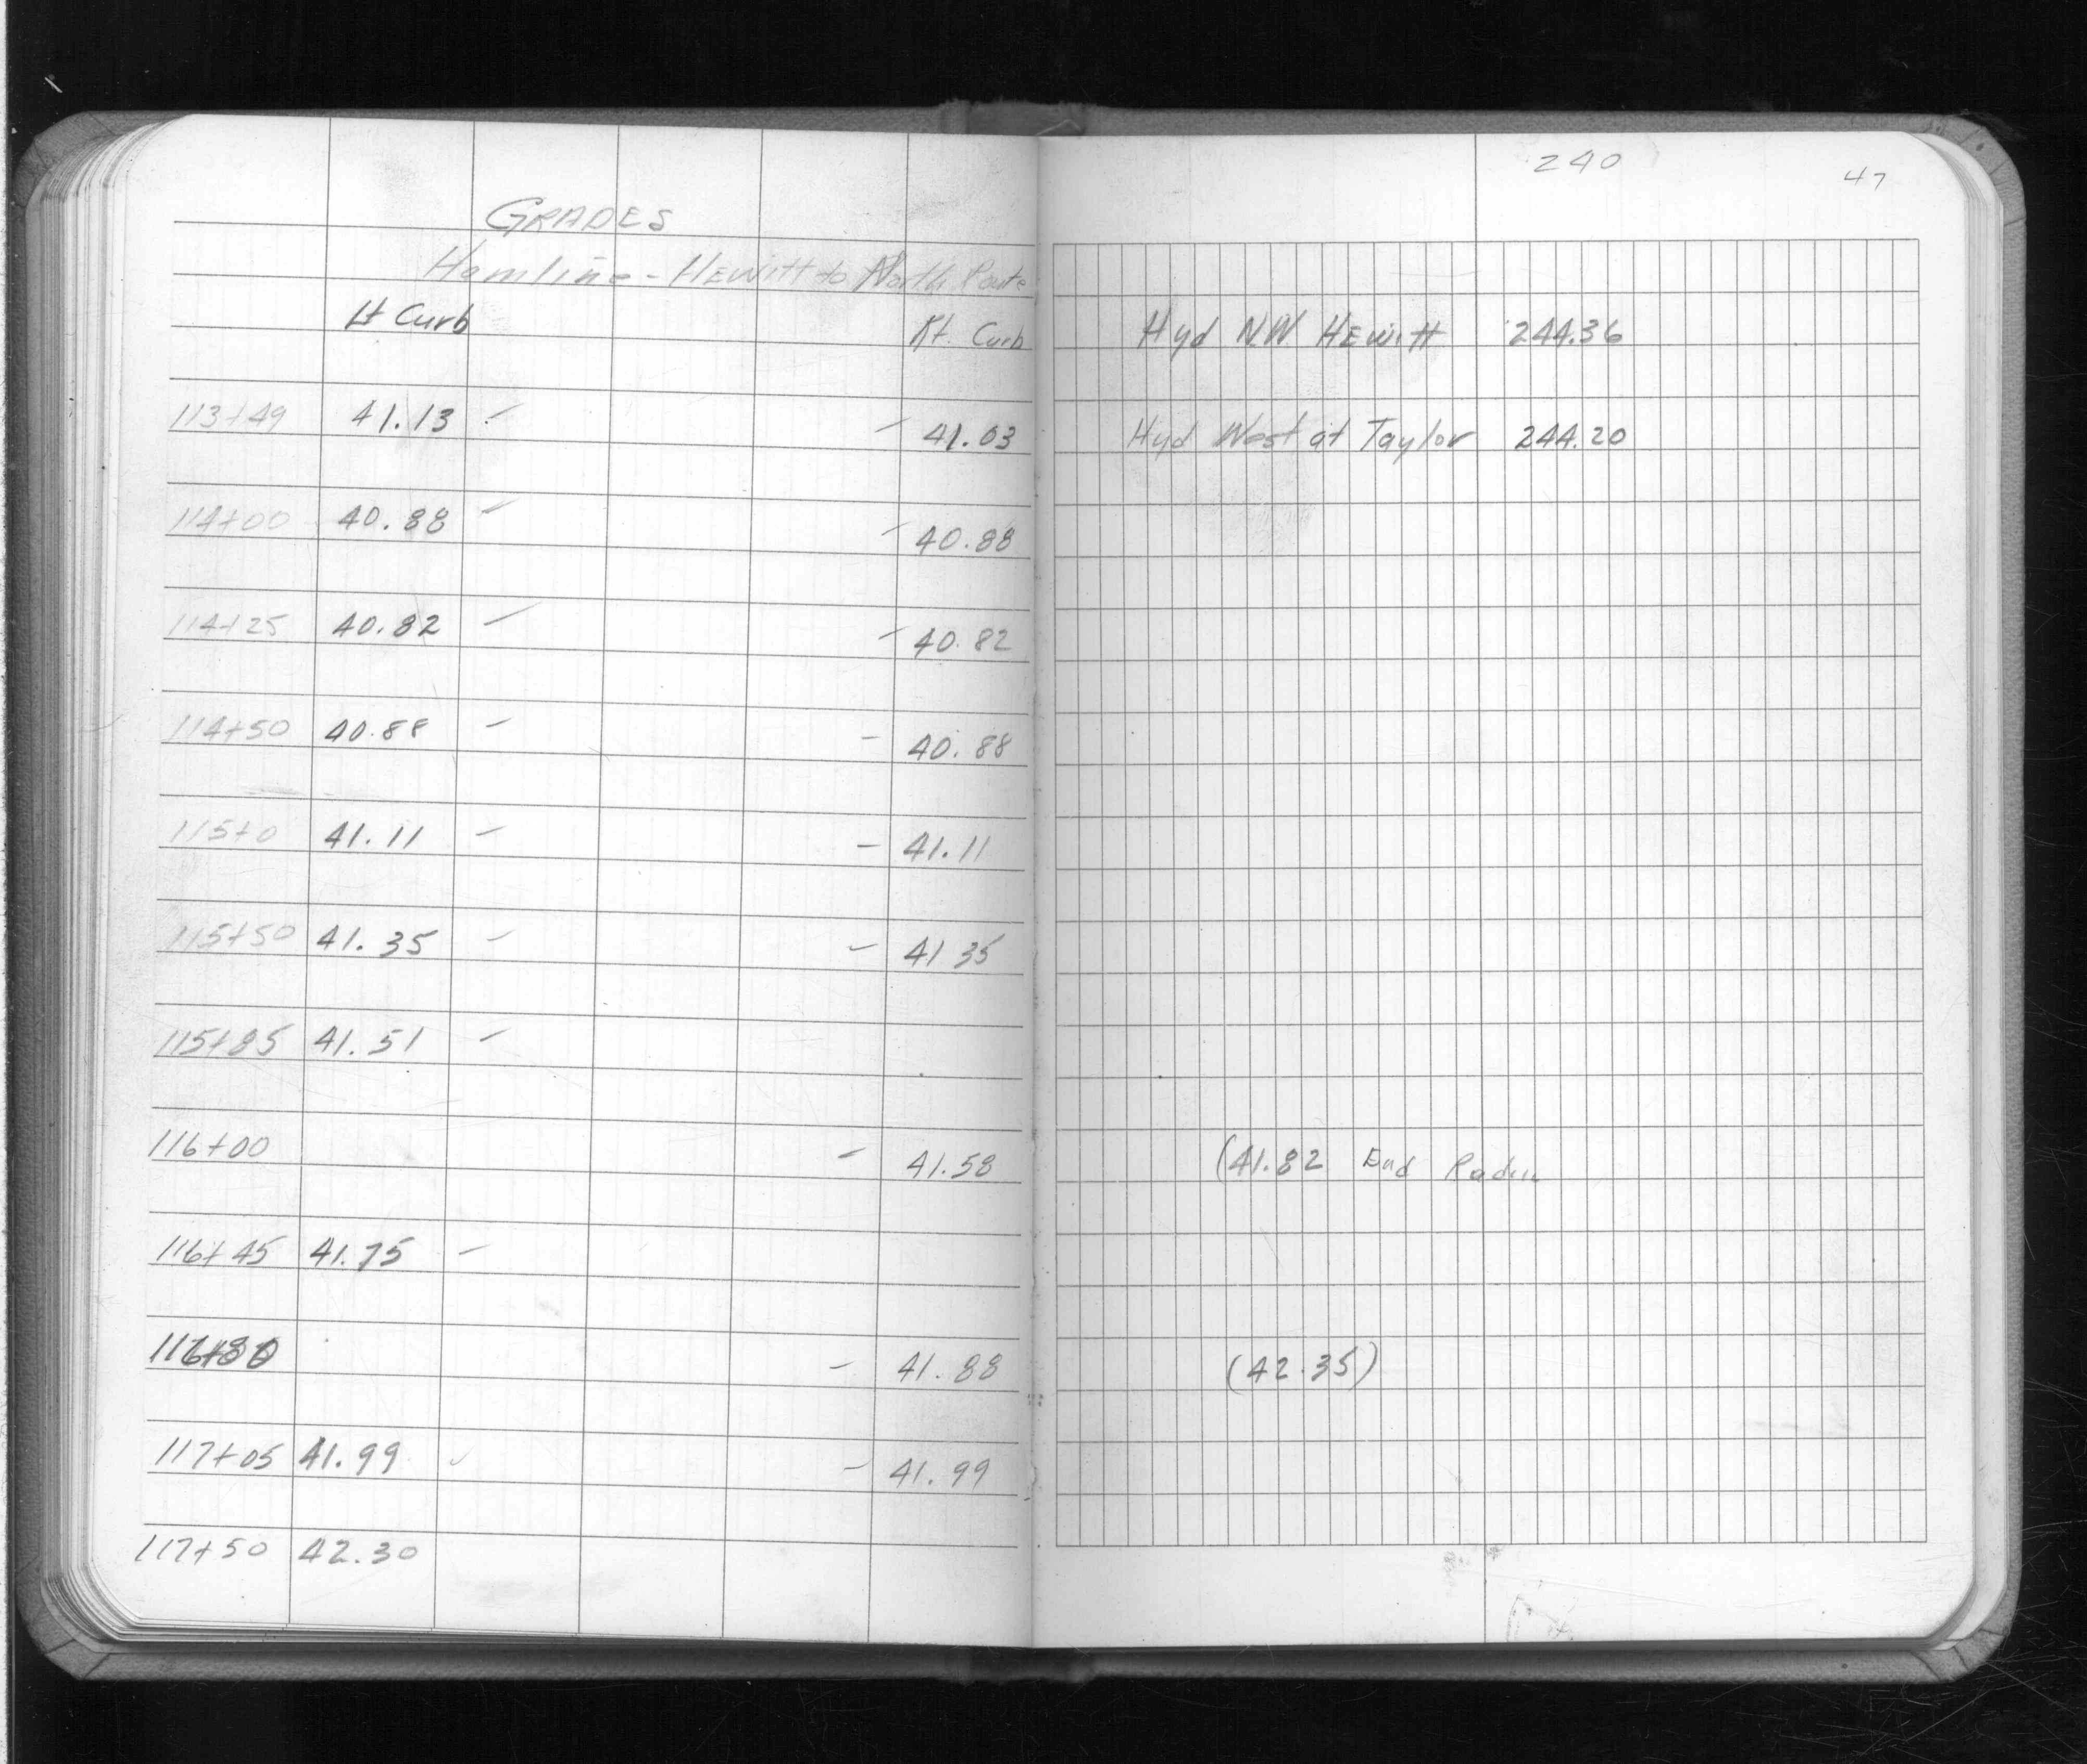 GRADES
Hamline - Hewitt to North
Lt Curb Rt. Curb
113+49 41.13 - - 41.03
114+00 40.88 - - 40.88
114+25 40.82 - - 40.82
114+50 40.88 - - 40.88
115+0 41.11 - - 41.11
115+50 41.35 - - 41 35
115+85 41.51 -
116+00 - 41.58
116+45 41.75 -
116+80 - 41.88
117+05 41.99 - - 41.99
117+50 42.30
240
47
Hyd NW Hewitt 244.36
Hyd West at Taylor 244.20
(41.82 End
(42.35)